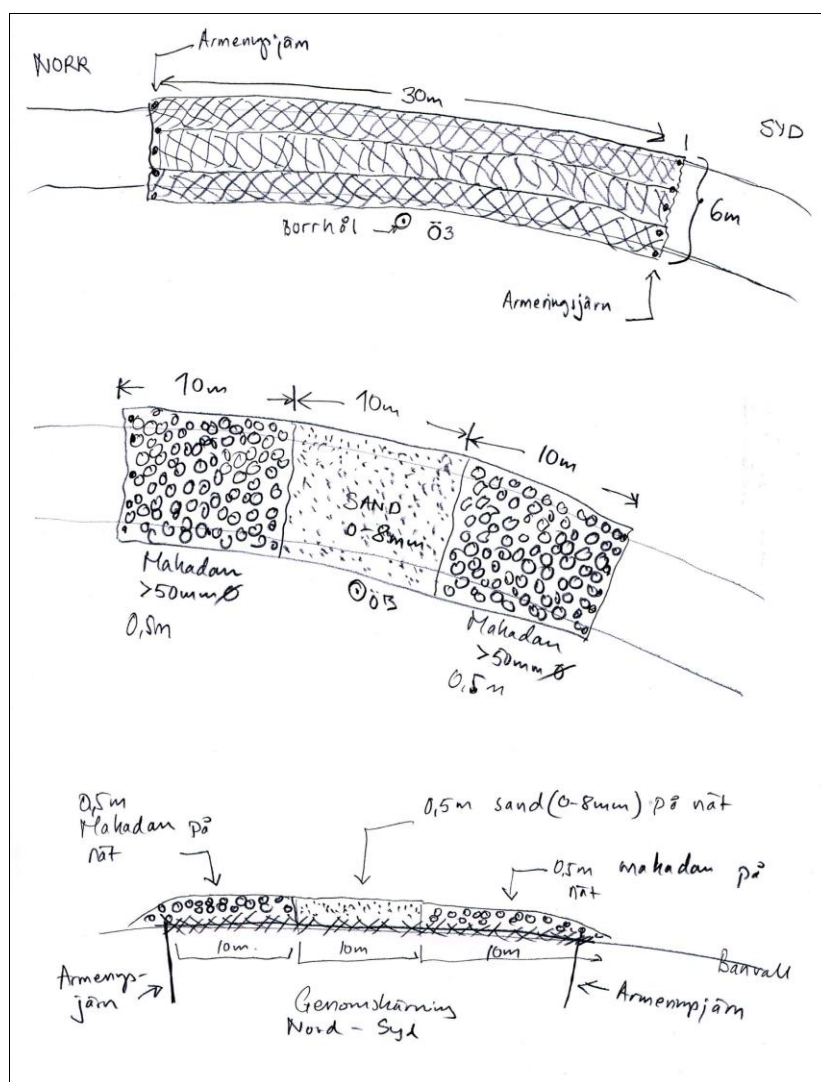 Armeringsjärn
NORR
30m
SYD
6m
Borrhål
Ö3
Armeringsjärn
10m
10m
10m
SAND
0-8mm
Makadan
>50mmØ
0,5m
Ö3
Makadan
>50mmØ
0,5m
0,5m
Makadan på
nät
0,5m sand (0-8mm) på nät
0,5m makadan på
nät
10m.
10m
10m
Banvall
Armerings-
järn
Armeringsjärn
Genomskärning
Nord - Syd